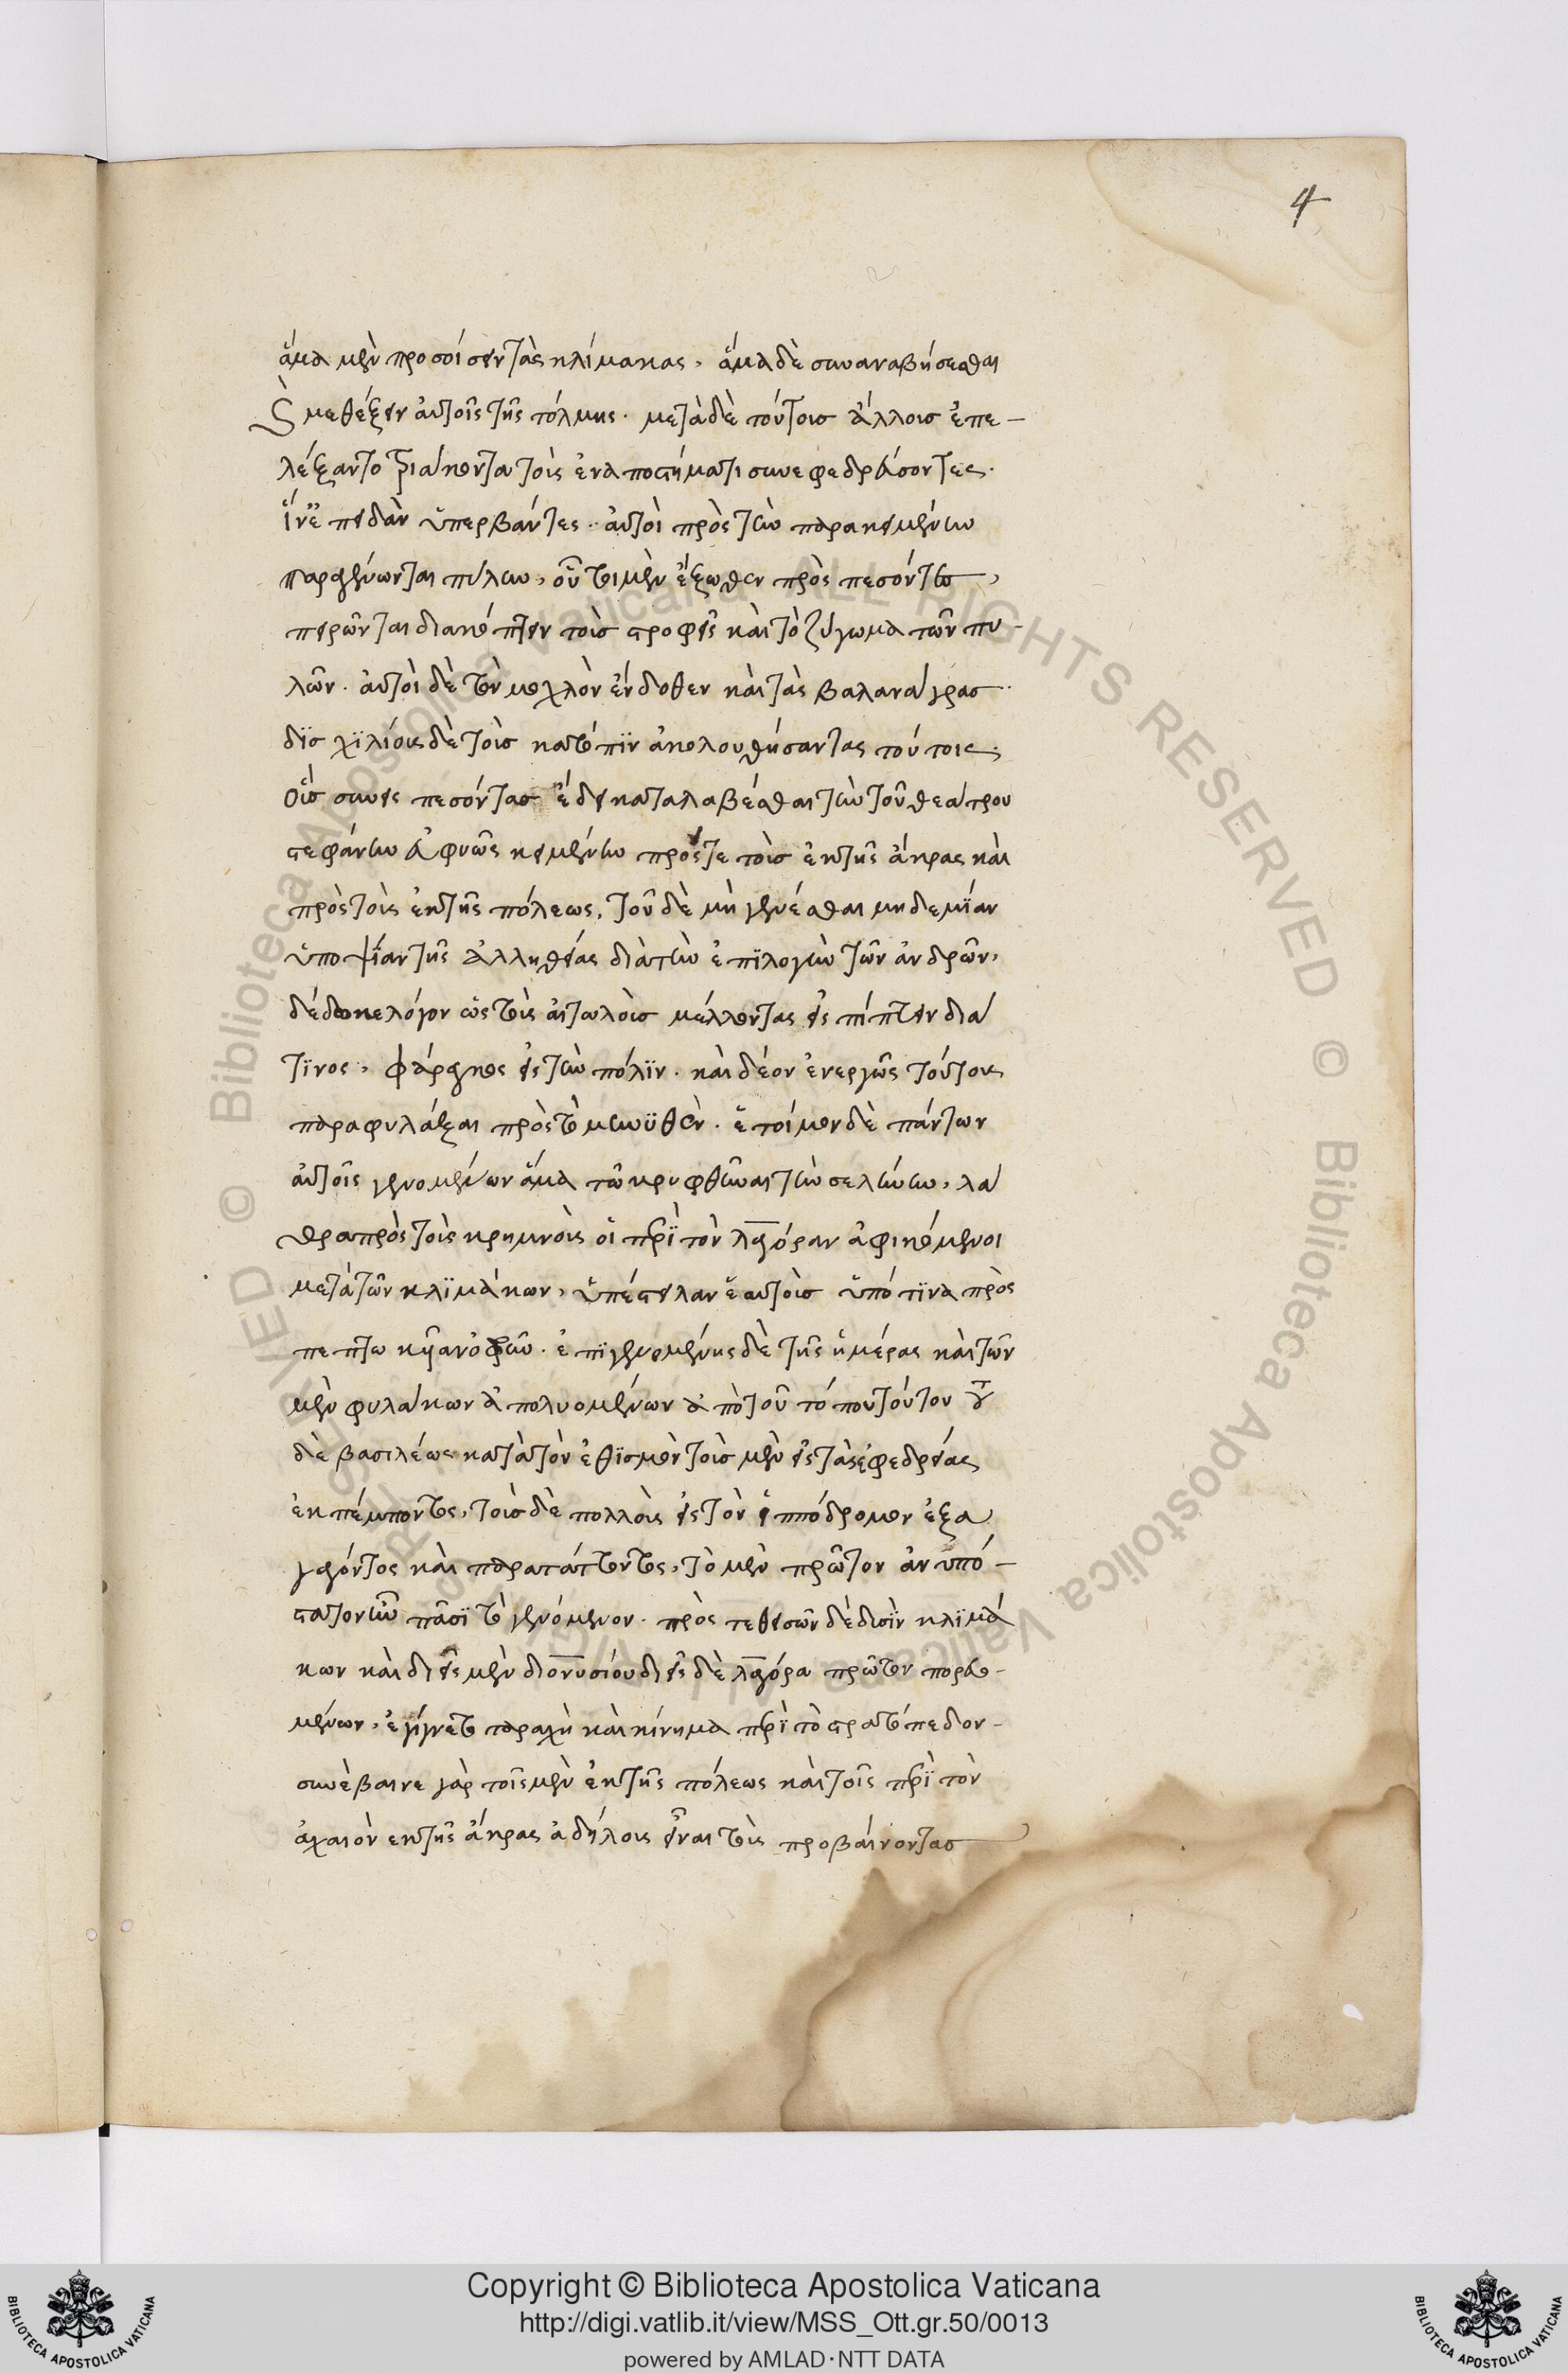 4
ἅμα μὲν προσοίσειν τὰς κλίμακας, ἅμα δὲ συναναβήσεσθαι
καὶ μεθέξειν αὐτοῖς τῆς τόλμης. μετὰ δὲ τούτοισ ἄλλοισ ἐπε-
λέξαντο τριάκοντα τοὺς ἐν ἀποστήματι συνεφεδρεύσοντες.
ἵν' ἐπειδὰν ὑπερβάντες. αὐτοὶ πρὸς τὴν παρακειμένην
παραγένωνται πύλην, οὗτοι μὲν ἔξωθεν πρὸς πεσόντες,
πειρῶνται διακόπτειν τοὺσ στροφεῖς καὶ τὸ ζύγωμα τῶν πυ-
λῶν. αὐτοὶ δὲ τὸν μοχλὸν ἔνδοθεν καὶ τὰς βαλανάγρασ.
δϊσ χϊλίους δὲ τοὺσ κατόπϊν ἀκολουθήσαντας τούτοις.
οὓσ συνεισπεσόντασ ἔδει καταλαβέσθαι τὴν τοῦ θεάτρου
στεφάνην εὐφυῶς κειμένην πρός τε τοὺσ ἐκ τῆς ἄκρας καὶ
πρὸς τοὺς ἐκ τῆς πόλεως, τοῦ δὲ μὴ γενέσθαι μηδεμϊαν
ὑποψίαν τῆς ἀλληθείας διὰ τὴν ἐπϊλογὴν τῶν ἀνδρῶν,
δέδωκε λόγον ὡς τοὺς αἰτωλοὺσ μέλλοντας εἰσπίπτειν διά
τϊνος, φάραγκος εἰς τὴν πόλϊν. καὶ δέον ἐνεργῶς τούτους
παραφυλάξαι πρὸς τὸ μηνϋθέν. ἑτοίμων δὲ πάντων
αὐτοῖς γενομένων ἅμα τῶ κρυφθῆναι τὴν σελήνην, λά
θρα πρὸς τοὺς κρημνοὺς οἱ περὶ τὸν λαγόραν ἀφικόμενοι
μετὰ τῶν κλϊμάκων, ὑπέστειλαν ἑαυτοὺσ ὑπό τϊνα πρὸς
ἐπϊγενομένης δὲ τῆς ἡμέρας καὶ τῶν
μὲν φυλάκων ἀπολυομένων ἀπὸ τοῦ τόπου τούτου τοῦ
δὲ βασιλέως κατὰ τὸν ἐθϊσμὸν τοὺσ μὲν εἰς τὰς ἐφεδρείας
ἐκπέμποντος, τοὺσ δὲ πολλοὺς εἰς τὸν ἱππόδρομον ἐξα
γαγόντος καὶ παρατάττοντος, τὸ μὲν πρῶτον ἀνυπό-
στατον ἦν πᾶσϊ τὸ γενόμενον. πρὸς τεθεισῶν δὲ δυσὶν κλϊμά
κων καὶ δι' εἷς μὲν διονυσίου δι' εἷς δὲ λαγόρα πρῶτον πορευο-
μένων, ἐγίγνετο ταραχὴ καὶ κίνημα περὶ τὸ στρατόπεδον-
συνέβαινε γὰρ τοῖς μὲν ἐκ τῆς πόλεως καὶ τοῖς περὶ τὸν
ἀχαιὸν ἐκ τῆς ἄκρας ἀδήλους εἶναι τοὺς προβαίνοντασ
Copyright © Biblioteca Apostolica Vaticana
http://digi.vatlib.it/view/MSS_Ott.gr.50/0013
powered by AMLAD·NTT DATA
BIBLIOTECA APOSTOLICA VATICANA
BIBLIOTECA APOSTOLICA VATICANA